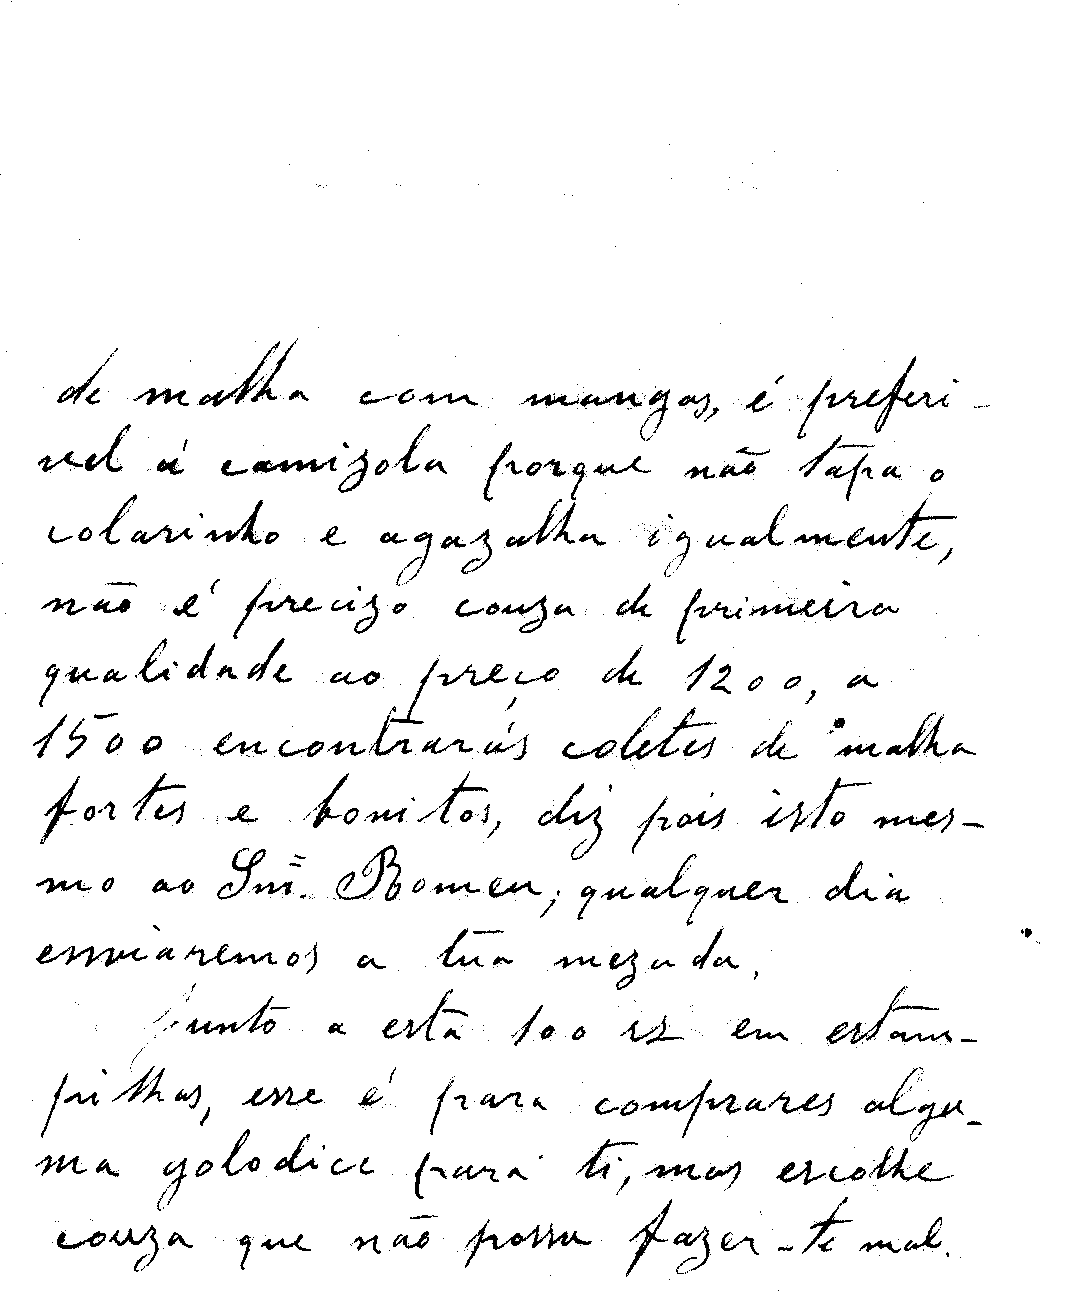 de malha com mangas, é preferi-
vel á camizola porque não tapa o
colarinho e agazalha igualmente,
não é precizo couza de primeira
qualidade ao preço de 1200, a
1500 encontrarás coletes de malha
fortes e bonitos, diz pois isto mes-
mo ao Snr. Romeu, qualquer dia
enviaremos a tua mezada.
Junto a esta 100 rs em estam-
pilhas, esse é para comprares algu-
ma golodice para ti, mas escolhe
couza que não possa fazer-te mal.